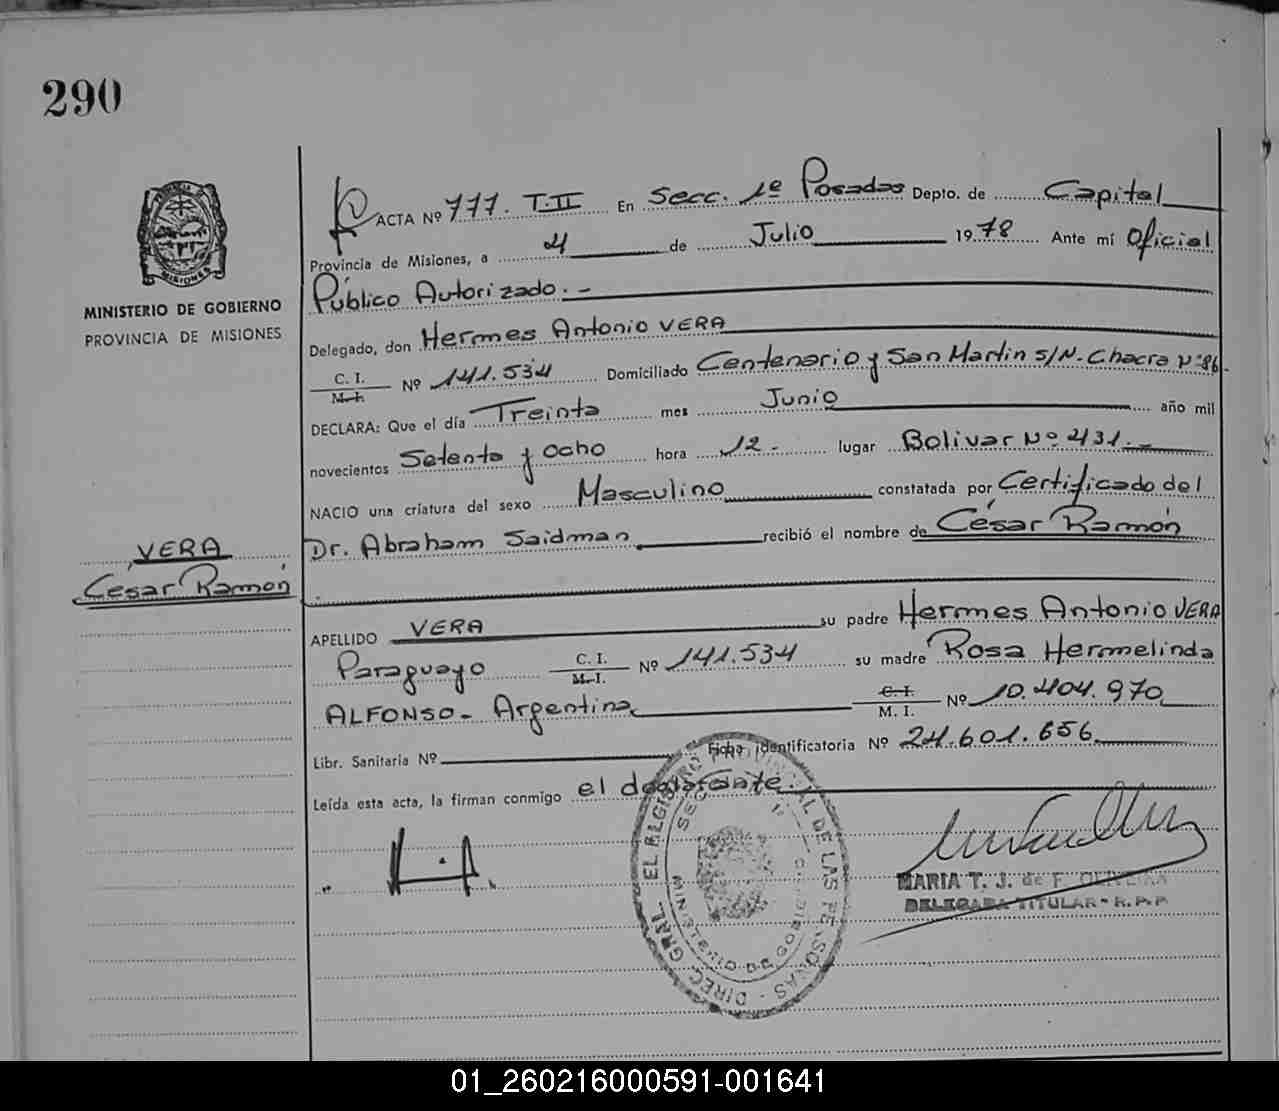 290
MINISTERIO DE GOBIERNO
PROVINCIA DE MISIONES
ACTA Nº 777. T.II En Secc. 1º Posadas Depto. de Capital
Provincia de Misiones, a 4 de Julio 1978 Ante mí Oficial
Público Autorizado.-
Delegado, don Hermes Antonio VERA
C. I. M. I. Nº 141.534 Domiciliado Centenario y San Martin S/N. Chacra Nº 86.
DECLARA: Que el día Treinta mes Junio año mil
novecientos Setenta y Ocho hora 12.- lugar Bolivar Nº 431.-
NACIO una criatura del sexo Masculino constatada por Certificado del
Dr. Abraham Saidman recibió el nombre de César Ramón
VERA
César Ramón
APELLIDO VERA su padre Hermes Antonio VERA
Paraguayo C. I. M. I. Nº 141.534 su madre Rosa Hermelinda
ALFONSO- Argentina C. I. M. I. Nº 10.404.970
Libr. Sanitaria Nº Ficha identificatoria Nº 24.601.656
Leída esta acta, la firman conmigo el declarante.
MARIA T. J. de F. OLIVEIRA
DELEGADA TITULAR - R.P.P
01_260216000591-001641